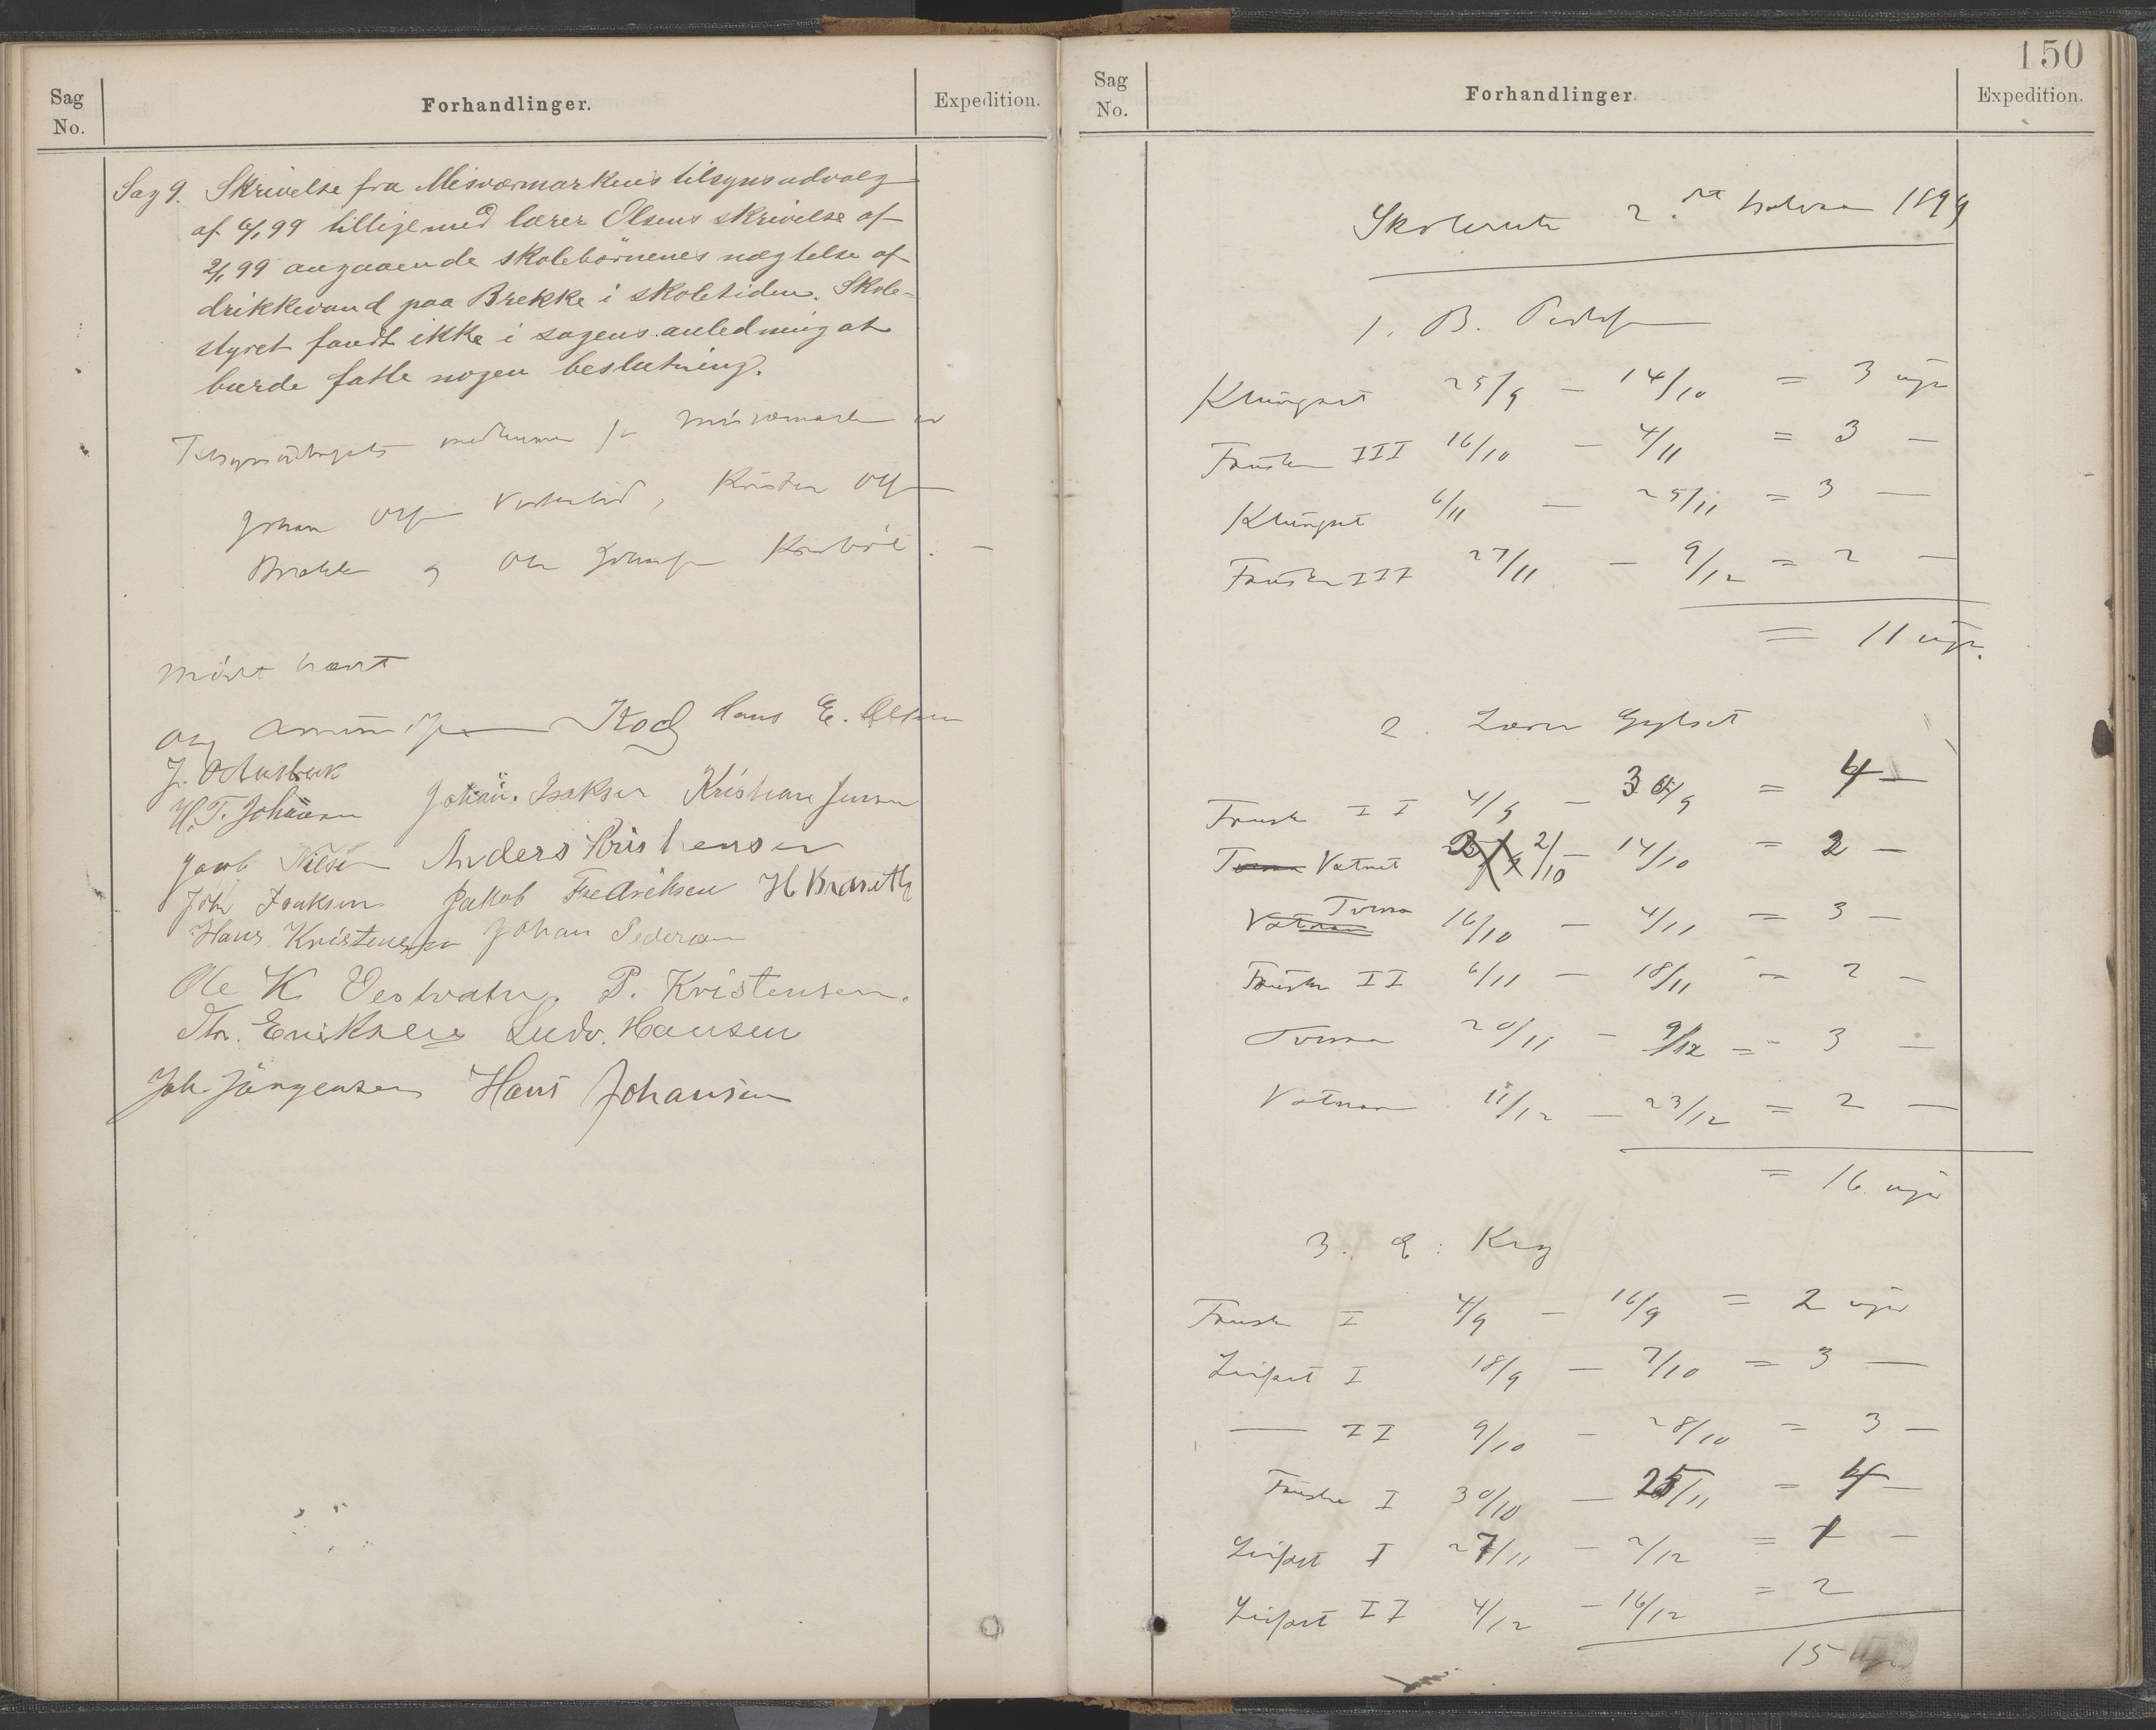 Sag
No.
Forhandlinger.
Expedition.
Sag 9. Skrivelse fra Misværmarkens tilsynsudvalg
af 6/1 99 tilligemed lærer Olsens skrivelse af
2/1 99 angaaende skolebørnenes nægtelse af
drikkevand paa Brekke i skoletiden. Skole-
styret fandt ikke i sagens anledning at
burde fatte nogen beslutning.
Tilsynsudvalgets medlemmer for Misværmarken er
Johan Olsen Kristen Olsen
Brekke og Ole Johnsen
Mødet hævet
Koch Hans E. Olsen
H. T. Johansen Johan Isaksen Kristian Jensen
Jacob Nilsen Anders Kristensen
Joh Isaksen Jakob Fredriksen
Hans Kristensen Johan Pedersen
Ole K Vestvatn. P. Kristensen.
Th. Eriksen Ludv. Hansen
Joh Jörgensen Hans Johansen
150
Sag
No.
Forhandlinger.
Expedition.
Skoleruten 2. det halvaar 1899
1. B. Pedersen
Klungset 25/9 — 14/10 = 3 uger
Fauske III 16/10 — 4/11 = 3 —
Klungset 6/11 — 25/11 = 3 —
Fauske III 27/11 — 9/12 = 2 —
= 11 uger.
2. Lærer Gylset
Fauske II 4/9 — 30/9 = 4 —
Vatnet 2/10 — 14/10 = 2 —
Torsna 16/10 — 4/11 = 3 —
Fauske II 6/11 — 18/11 = 2 —
Torsna 20/11 — 9/12 = 3 —
Vatnan 11/12 — 23/12 = 2 —
= 16 uger
3. E. Krog
Fauske I 4/9 — 16/9 = 2 uger
Leifset I 18/9 — 7/10 = 3 —
— II 9/10 — 28/10 = 3 —
Fauske I 30/10 — 25/11 = 4 —
Leifset I 27/11 — 2/12 = 1 —
Leifset II 4/12 — 16/12 = 2
15 uger